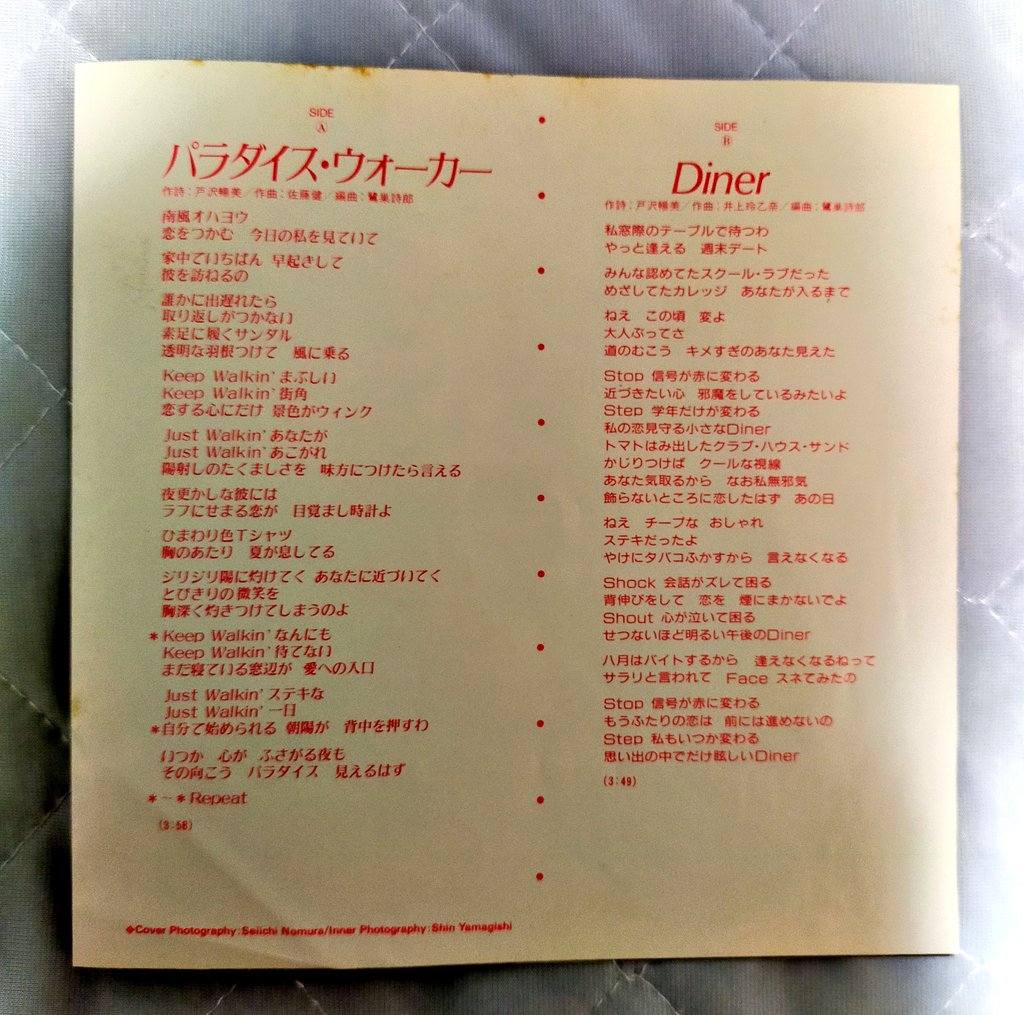 SIDE
A
パラダイス・ウォーカー
作詩：戸沢暢美／作曲：佐藤健／編曲：鷺巣詩郎
南風オハヨウ
恋をつかむ　今日の私を見ていて
家中でいちばん 早起きして
彼を訪ねるの
誰かに出遅れたら
取り返しがつかない
素足に履くサンダル
透明な羽根つけて　風に乗る
Keep Walkin' まぶしい
Keep Walkin' 街角
恋する心にだけ 景色がウィンク
Just Walkin' あなたが
Just Walkin' あこがれ
陽射しのたくましさを　味方につけたら言える
夜更かしな彼には
ラフにせまる恋が　目覚まし時計よ
ひまわり色Tシャツ
胸のあたり　夏が息してる
ジリジリ陽に灼けてく あなたに近づいてく
とびきりの微笑を
胸深く灼きつけてしまうのよ
＊Keep Walkin' なんにも
Keep Walkin' 待てない
まだ寝ている窓辺が　愛への入口
Just Walkin' ステキな
Just Walkin' 一日
＊自分で始められる 朝陽が　背中を押すわ
いつか　心が　ふさがる夜も
その向こう　パラダイス　見えるはず
＊〜＊Repeat
(3:58)
SIDE
B
Diner
作詩：戸沢暢美／作曲：井上玲乙奈／編曲：鷺巣詩郎
私窓際のテーブルで待つわ
やっと逢える　週末デート
みんな認めてたスクール・ラブだった
めざしてたカレッジ　あなたが入るまで
ねえ　この頃　変よ
大人ぶってさ
道のむこう　キメすぎのあなた見えた
Stop 信号が赤に変わる
近づきたい心　邪魔をしているみたいよ
Step 学年だけが変わる
私の恋見守る小さなDiner
トマトはみ出したクラブ・ハウス・サンド
かじりつけば　クールな視線
あなた気取るから　なお私無邪気
飾らないところに恋したはず　あの日
ねえ　チープな おしゃれ
ステキだったよ
やけにタバコふかすから　言えなくなる
Shock 会話がズレて困る
背伸びをして　恋を　煙にまかないでよ
Shout 心が泣いて困る
せつないほど明るい午後のDiner
八月はバイトするから　逢えなくなるねって
サラリと言われて　Face スネてみたの
Stop 信号が赤に変わる
もうふたりの恋は　前には進めないの
Step 私もいつか変わる
思い出の中でだけ眩しいDiner
(3:49)
◆Cover Photography:Seiichi Nomura/Inner Photography:Shin Yamagishi